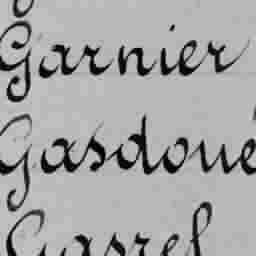 Garnier
Gasdoué